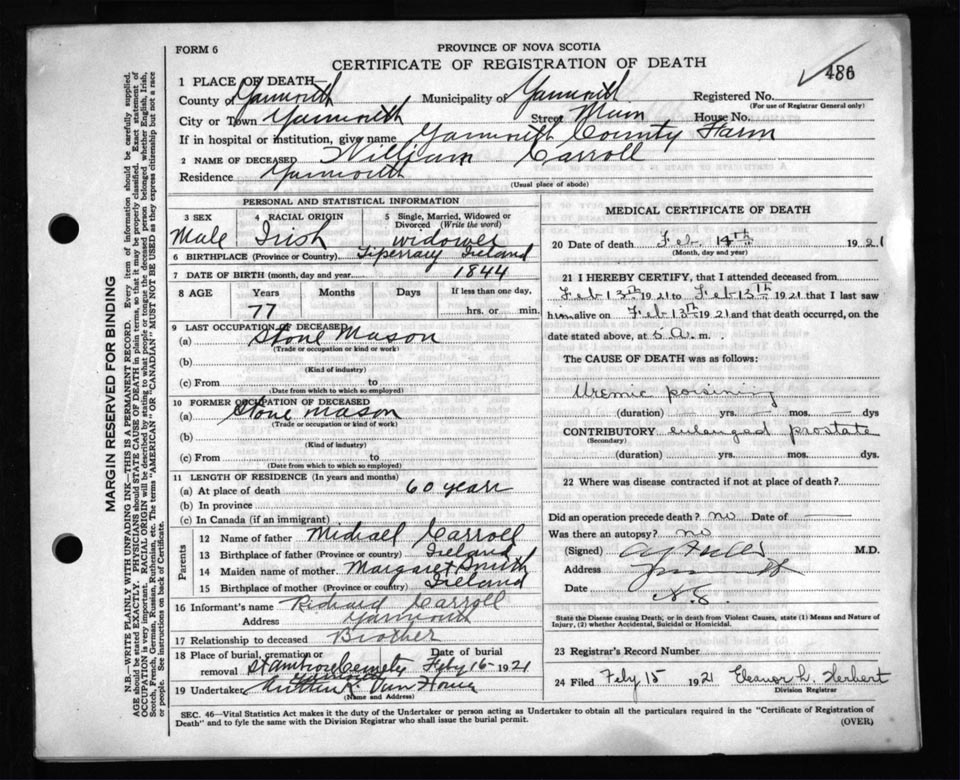 FORM 6
PROVINCE OF NOVA SCOTIA
CERTIFICATE OF REGISTRATION OF DEATH
486
1 PLACE OF DEATH—
County of Yarmouth Municipality of Yarmouth Registered No.
(For use of Registrar General only)
City or Town Yarmouth Street Main House No.
If in hospital or institution, give name Yarmouth County Farm
2 NAME OF DECEASED William Carroll
Residence Yarmouth
(Usual place of abode)
PERSONAL AND STATISTICAL INFORMATION
3 SEX
Male
4 RACIAL ORIGIN
Irish
5 Single, Married, Widowed or Divorced (Write the word)
widower
6 BIRTHPLACE (Province or Country) Tiperrary Ireland
7 DATE OF BIRTH (month, day and year) 1844
8 AGE Years Months Days If less than one day,
77 hrs. or min.
9 LAST OCCUPATION OF DECEASED
(a) Stone Mason
(Trade or occupation or kind or work)
(b)
(Kind of industry)
(c) From to
(Date from which to which so employed)
10 FORMER OCCUPATION OF DECEASED
(a) Stone mason
(Trade or occupation or kind of work)
(b)
(Kind of industry)
(c) From to
(Date from which to which so employed)
11 LENGTH OF RESIDENCE (In years and months)
(a) At place of death 60 years
(b) In province
(c) In Canada (if an immigrant)
Parents
12 Name of father Michael Carroll
13 Birthplace of father (Province or country) Ireland
14 Maiden name of mother Margaret Smith
15 Birthplace of mother (Province or country) Ireland
16 Informant's name Richard Carroll
Address Yarmouth
17 Relationship to deceased Brother
18 Place of burial, cremation or removal Date of burial
St Ambrose Cemetry Feby 16 1921
Yarmouth
19 Undertaker Arthur K Van Horne
(Name and Address)
MEDICAL CERTIFICATE OF DEATH
20 Date of death Feb. 14th 1921
(Month, day and year)
21 I HEREBY CERTIFY, that I attended deceased from
Feb 13th 1921 to Feb 13th 1921 that I last saw
him alive on Feb 13th 1921 and that death occurred, on the
date stated above, at 5 A. m.
The CAUSE OF DEATH was as follows:
Uremic poisining
(duration) yrs. mos. dys
CONTRIBUTORY enlarged prostate
(Secondary)
(duration) yrs. mos. dys.
22 Where was disease contracted if not at place of death?
Did an operation precede death? no Date of
Was there an autopsy? no
(Signed) M.D.
Address Yarmouth
Date N.S.
State the Disease causing Death, or in death from Violent Causes, state (1) Means and Nature of Injury, (2) whether Accidental, Suicidal or Homicidal.
23 Registrar's Record Number
24 Filed Feby 15 1921 Eleanor L. Herbert
Division Registrar
SEC. 46—Vital Statistics Act makes it the duty of the Undertaker or person acting as Undertaker to obtain all the particulars required in the "Certificate of Registration of
Death" and to fyle the same with the Division Registrar who shall issue the burial permit. (OVER)
MARGIN RESERVED FOR BINDING
N.B.—WRITE PLAINLY WITH UNFADING INK—THIS IS A PERMANENT RECORD. Every item of information should be carefully supplied.
AGE should be stated EXACTLY. PHYSICIANS should STATE CAUSE OF DEATH in plain terms, so that it may be properly classified. Exact statement of
OCCUPATION is very important. RACIAL ORIGIN will be described by stating to what people or tongue the deceased person belonged whether English, Irish,
Scotch, French, German, Russian, Ruthenian, etc. The terms "AMERICAN" OR "CANADIAN" MUST NOT BE USED as they express citizenship but not a race
or people. See instructions on back of Certificate.